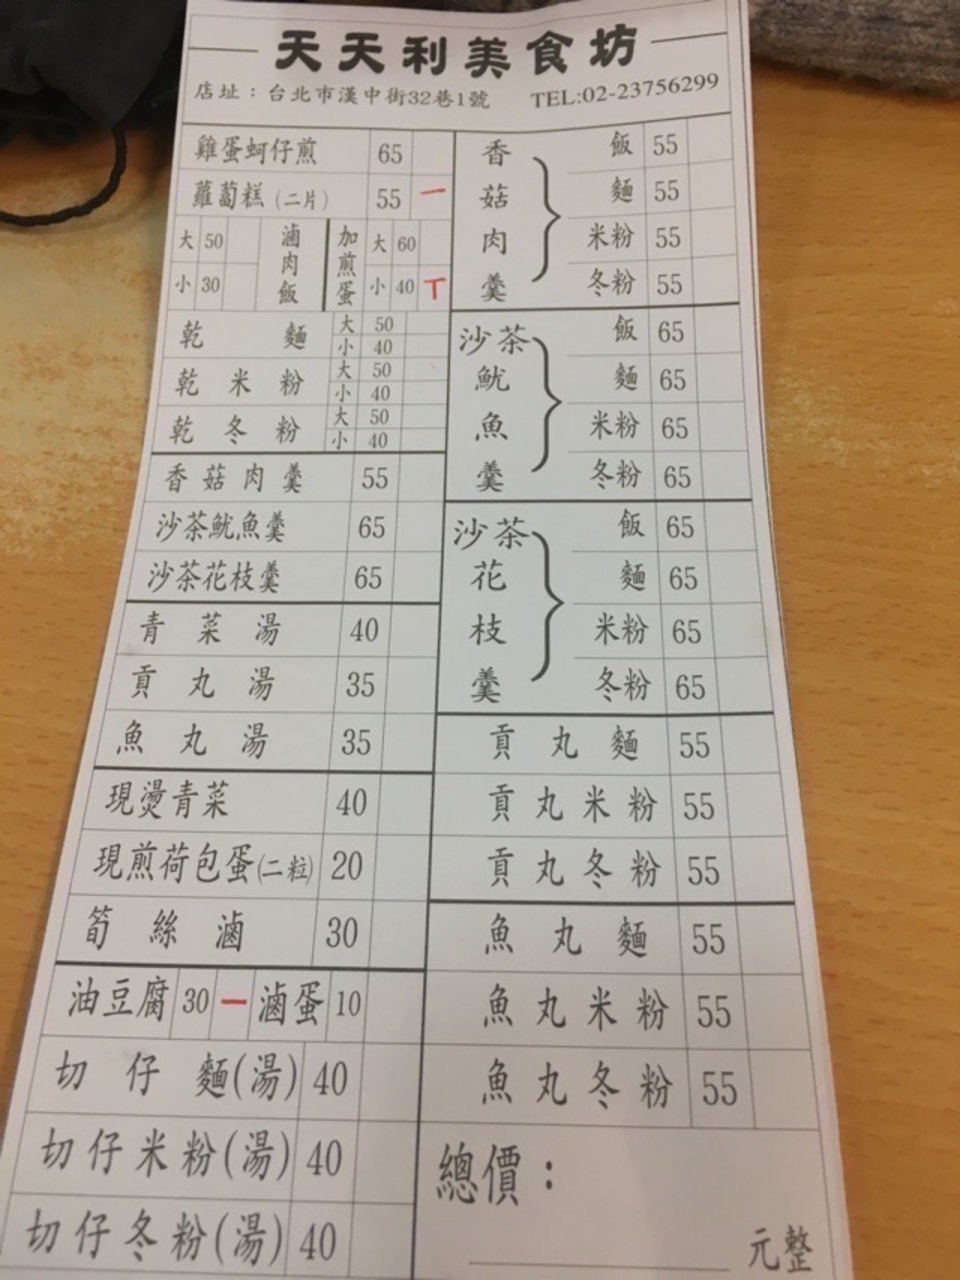 天天利美食坊
店址：台北市漢中街32巷1號 TEL:02-23756299
雞蛋蚵仔煎 65
蘿蔔糕(二片) 55 一
滷肉飯 大 50
小 30
加煎蛋 大 60
小 40 丅
乾麵 大 50
小 40
乾米粉 大 50
小 40
乾冬粉 大 50
小 40
香菇肉羹 55
沙茶魷魚羹 65
沙茶花枝羹 65
青菜湯 40
貢丸湯 35
魚丸湯 35
現燙青菜 40
現煎荷包蛋(二粒) 20
筍絲滷 30
油豆腐 30 一 滷蛋 10
切仔麵(湯) 40
切仔米粉(湯) 40
切仔冬粉(湯) 40
香菇肉羹
飯 55
麵 55
米粉 55
冬粉 55
沙茶魷魚羹
飯 65
麵 65
米粉 65
冬粉 65
沙茶花枝羹
飯 65
麵 65
米粉 65
冬粉 65
貢丸麵 55
貢丸米粉 55
貢丸冬粉 55
魚丸麵 55
魚丸米粉 55
魚丸冬粉 55
總價：
元整